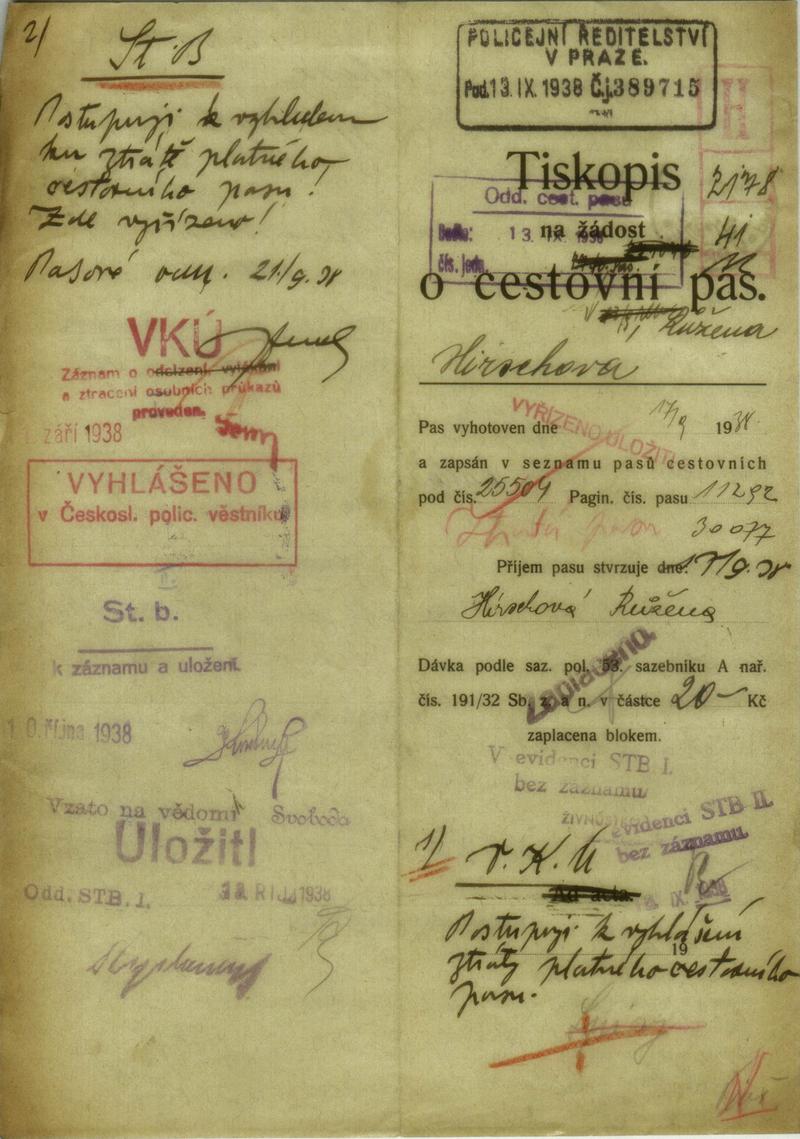 2/
St. B
Postupuji k vzhledem
ku ztrátě platného
cestovního pasu!
Zde vyřízeno!
Pasové odd. 21/9. 38
VKÚ
Záznam o odcizení
a ztracení osobních průkazů
proveden.
září 1938
VYHLÁŠENO
v Českosl. polic. věstníku
II.
St. b.
k záznamu a uložení.
10. října 1938
Vzato na vědomí Svoboda
Uložiti
Odd. STB. I. ŘÍJ. 1938
POLICEJNÍ ŘEDITELSTVÍ
V PRAZE.
Pod. 13. IX. 1938 Č.j. 389715
H
Tiskopis
2178
Odd. cest. pasů
Došlo: 13. IX. 1938
na žádost
41
čís. jedn.
11
o cestovní pas.
Růžena
Hirschova
VYŘÍZENO ULOŽITI
Pas vyhotoven dne 17/9 1938
a zapsán v seznamu pasů cestovních
pod čís. 25504 Pagin. čís. pasu 11292
pasu
30077
Příjem pasu stvrzuje dne: 17/9. 38
Hirschová Růžena
Dávka podle saz. pol. 53. sazebníku A nař.
Zaplaceno.
čís. 191/32 Sb. z. a n. v částce 20- Kč
zaplacena blokem.
V evidenci STB I.
bez záznamu
evidenci STB II.
bez záznamu.
1/ V. K. Ú
Ad acta.
IX. 1938
Postupuji k vyhlášení
19
ztráty platného cestovního
pasu.